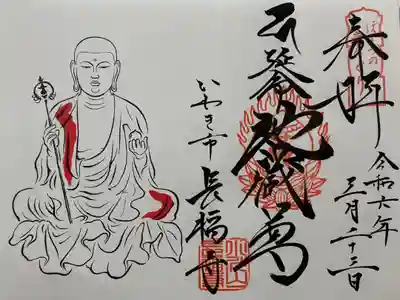 奉拝
令和六年
三月二十三日
地蔵尊
いわき市 長福寺